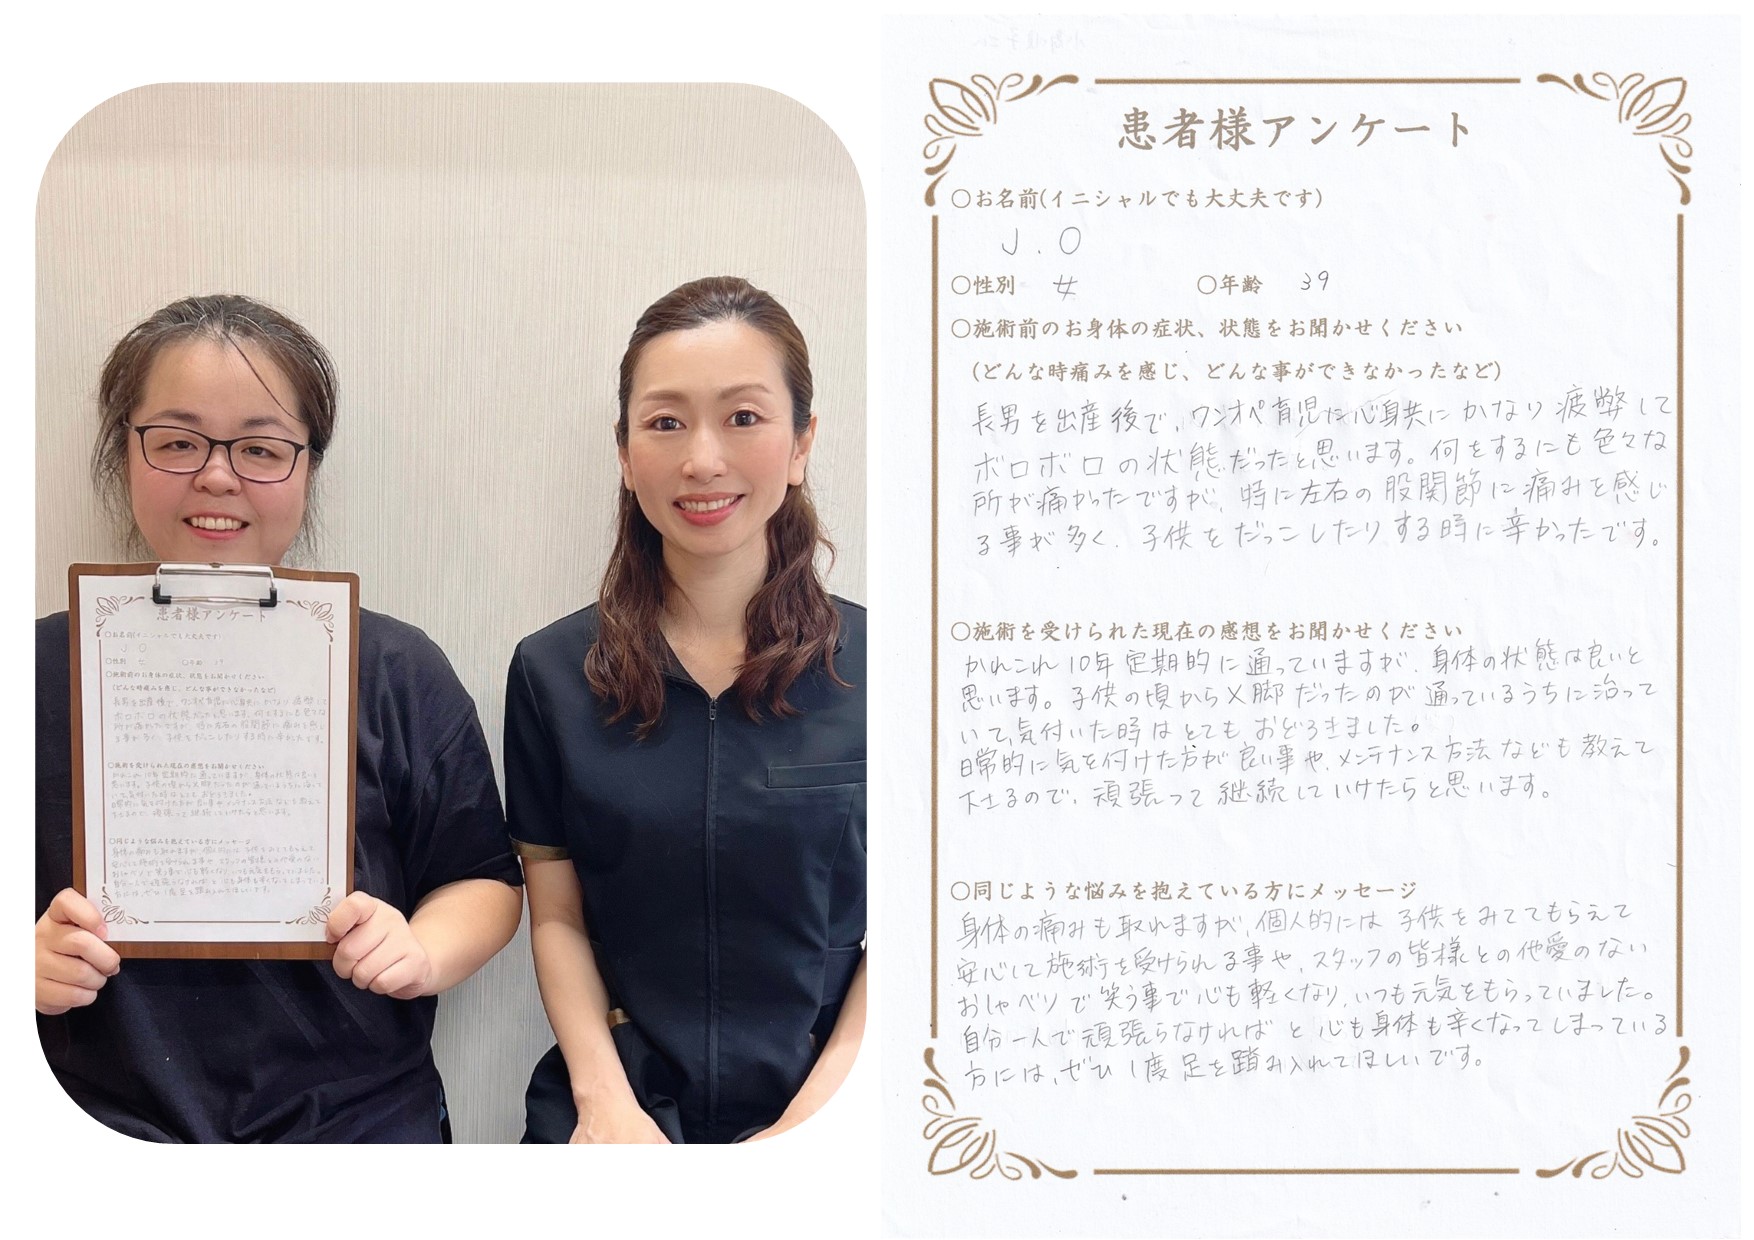 患者様アンケート
〇お名前(イニシャルでも大丈夫です)
J.O
〇性別 女 〇年齢 39
〇施術前のお身体の症状、状態をお聞かせください
(どんな時痛みを感じ、どんな事ができなかったなど)
長男を出産後で、ワンオペ育児だ心身共にかなり疲弊して
ボロボロの状態だったと思います。何をするにも色々な
所が痛かったですが、特に左右の股関節に痛みを感じ
る事が多く、子供をだっこしたりする時に辛かったです。
〇施術を受けられた現在の感想をお聞かせください
かれこれ10年定期的に通っていますが、身体の状態は良いと
思います。子供の頃からX脚だったのが通っているうちに治って
いて、気付いた時はとてもおどろきました。
日常的に気を付けた方が良い事や、メンテナンス方法なども教えて
下さるので、頑張って継続していけたらと思います。
〇同じような悩みを抱えている方にメッセージ
身体の痛みも取れますが、個人的には子供をみててもらえて
安心して施術を受けられる事や、スタッフの皆様との他愛のない
おしゃべりで笑う事で心も軽くなり、いつも元気をもらっていました。
自分一人で頑張らなければと心も身体も辛くなってしまっている
方には、ぜひ1度足を踏み入れてほしいです。